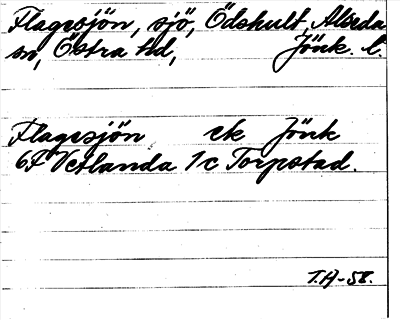 Flagesjön, sjö, Ödshult, Alseda
sn, Östra hd, Jönk. l.
Flagesjön ek Jönk
6F Vetlanda 1c Torpstad.
T.A-58.